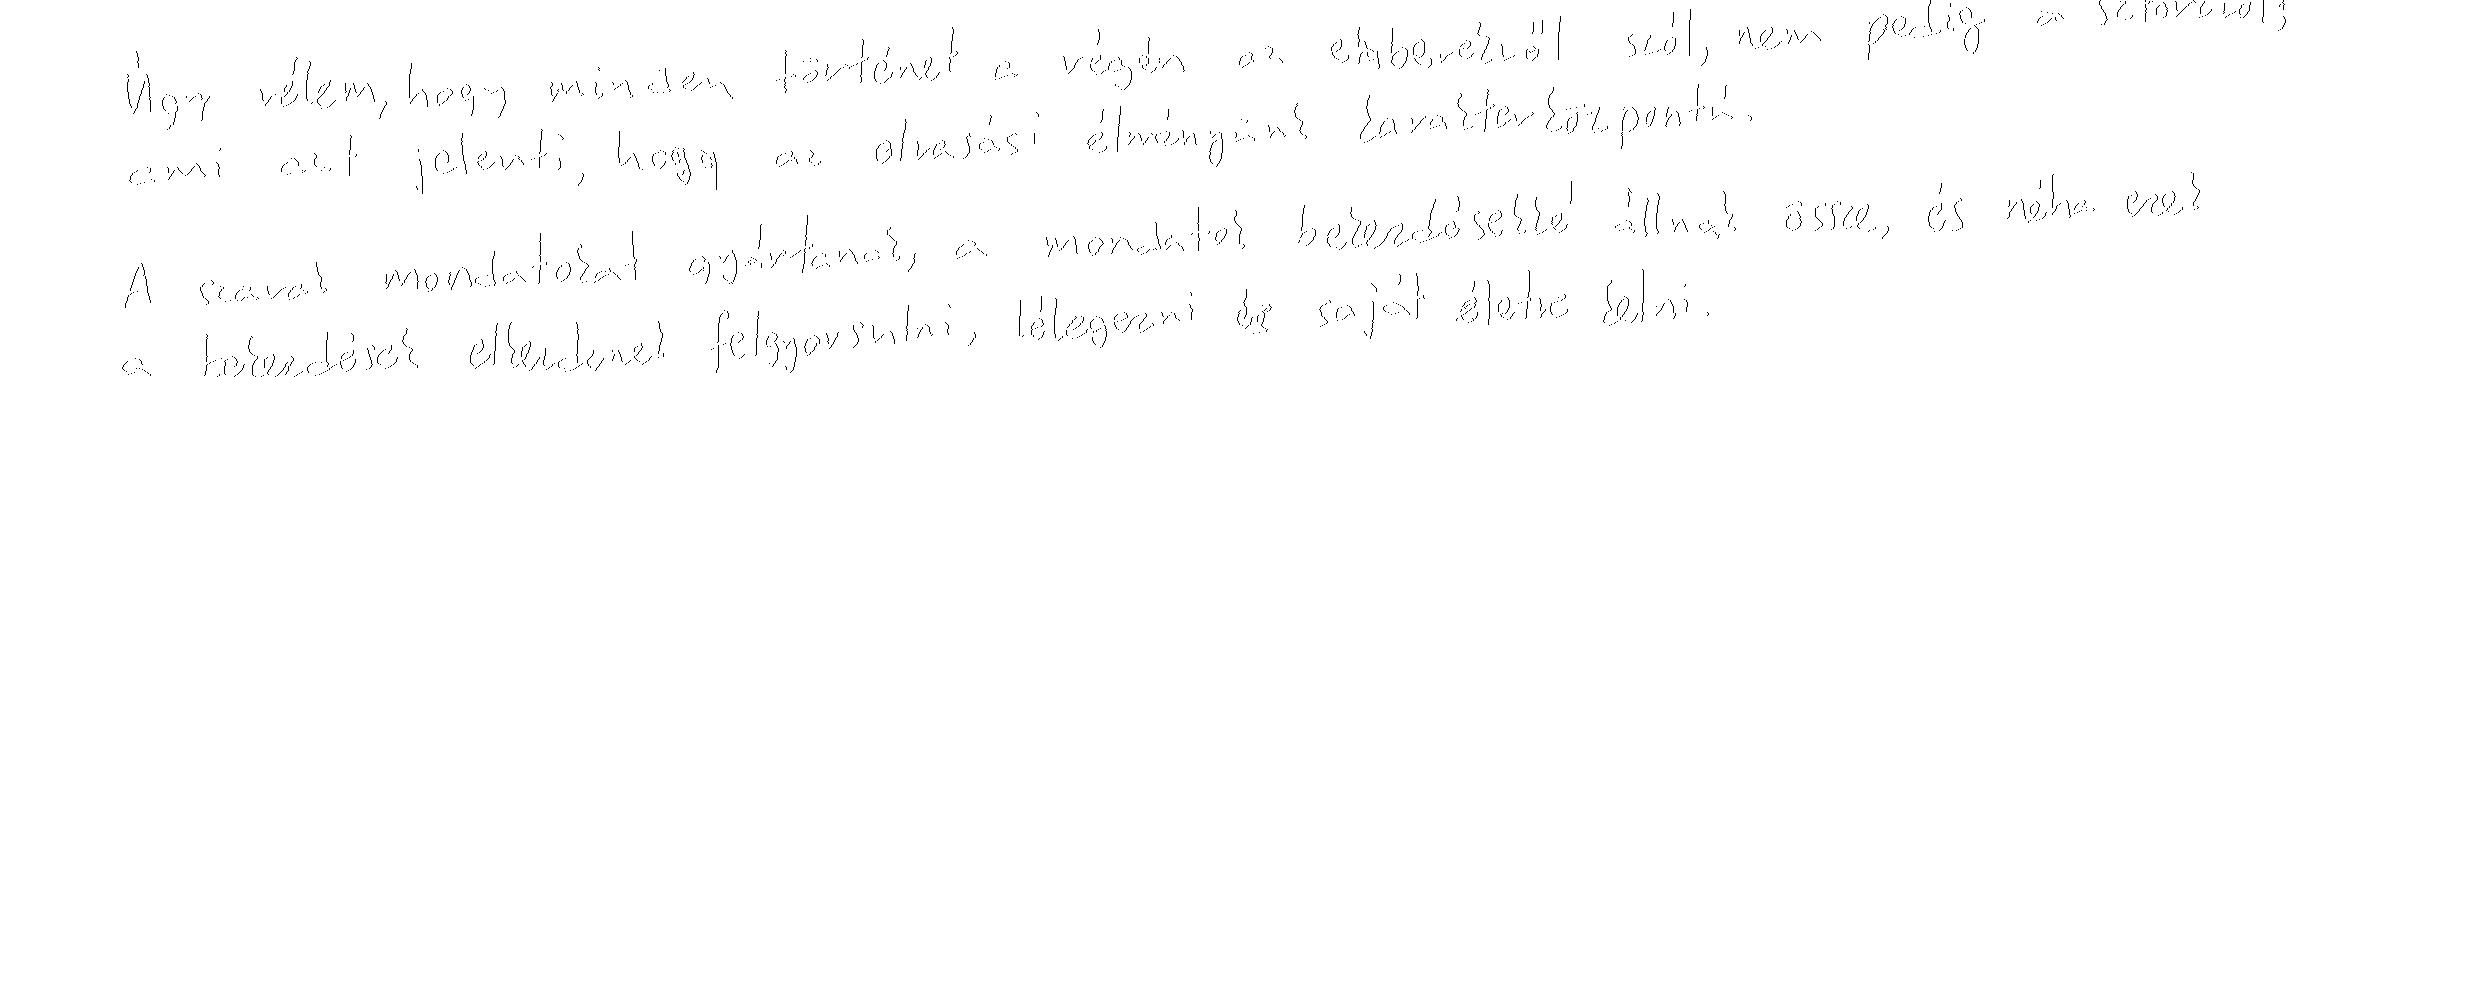 Úgy vélem, hogy minden történet a végén az emberekről szól, nem pedig a
ami azt jelenti, hogy az olvasási élményünk karakterközpontú.
A szavak mondatokat gyártanak, a mondatok bekezdésekké állnak össze, és néha ezek
a bekezdések elkezdenek felgyorsulni, lélegezni és saját életre kelni.